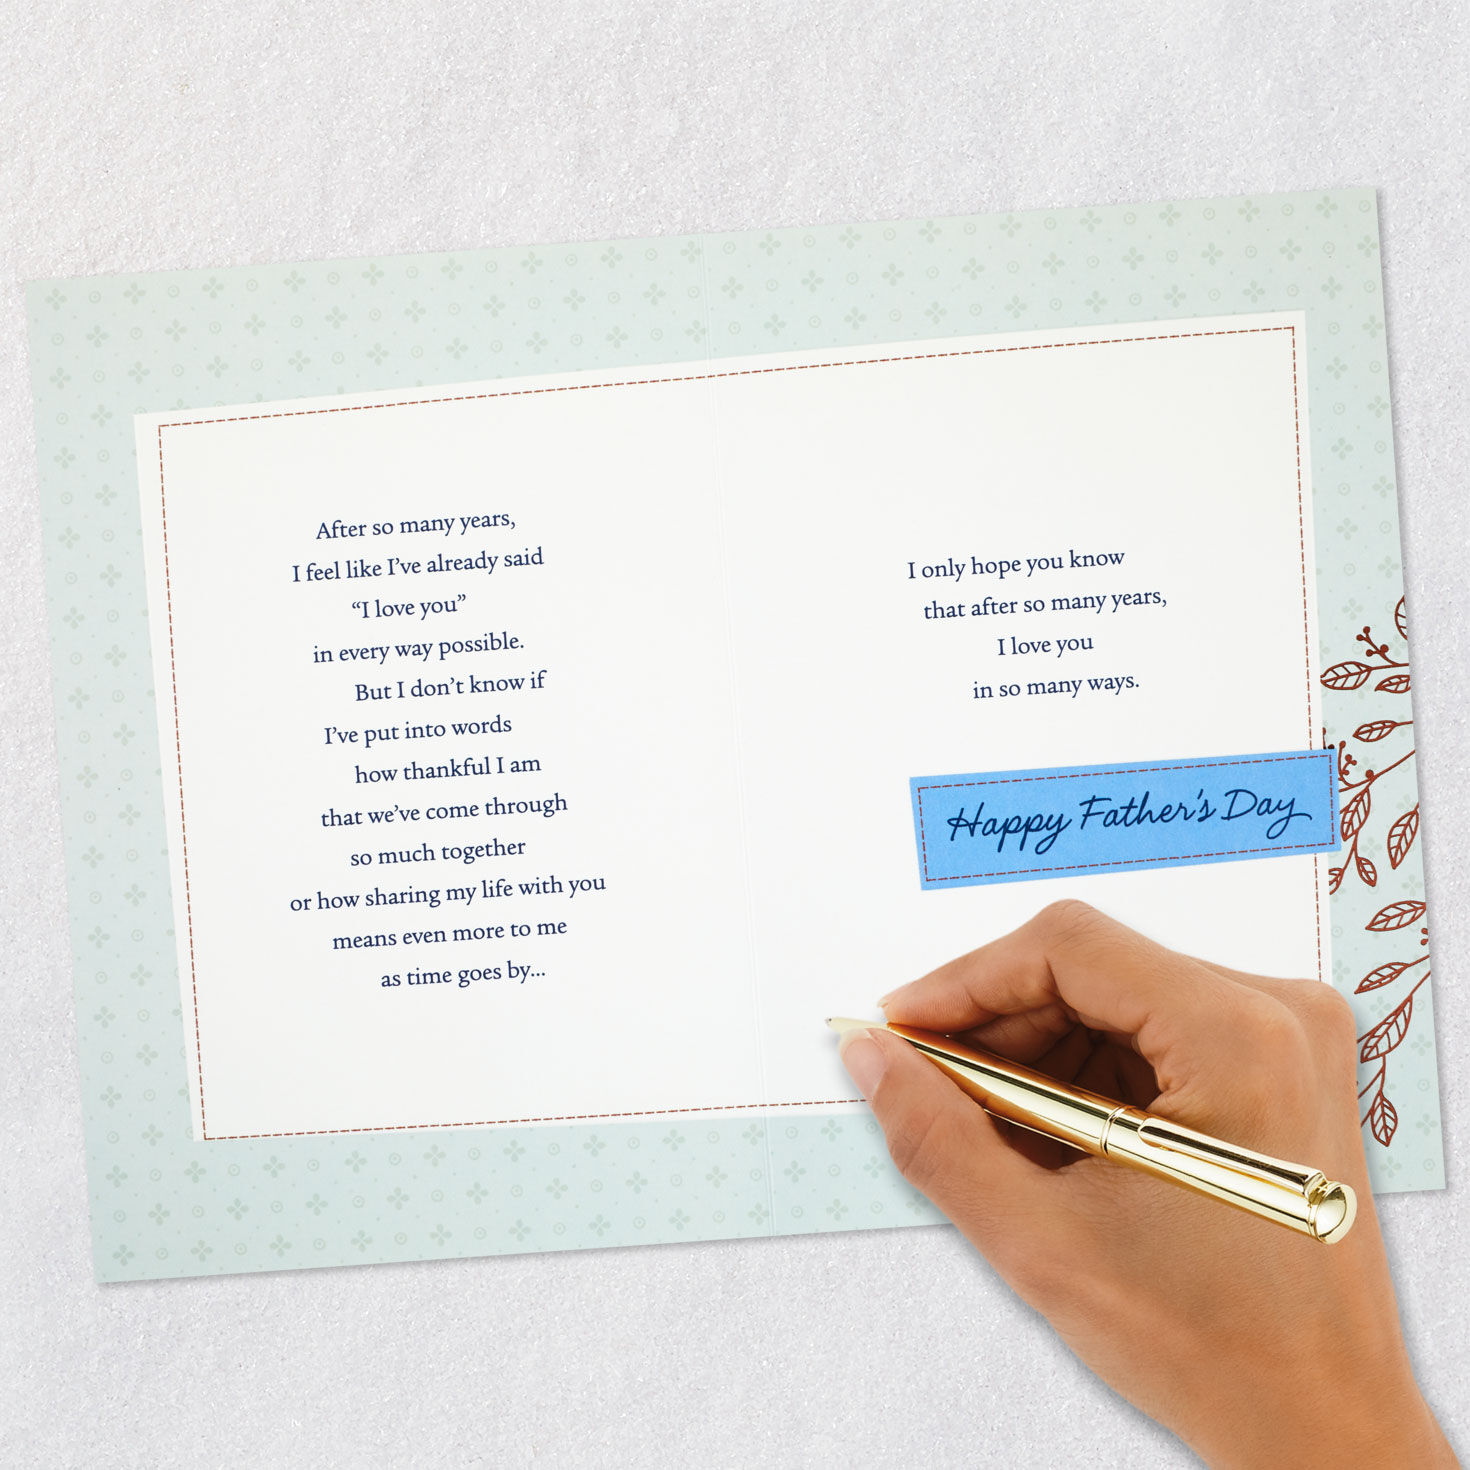 After so many years,
I feel like I’ve already said
“I love you”
in every way possible.
But I don’t know if
I’ve put into words
how thankful I am
that we’ve come through
so much together
or how sharing my life with you
means even more to me
as time goes by...
I only hope you know
that after so many years,
I love you
in so many ways.
Happy Father’s Day